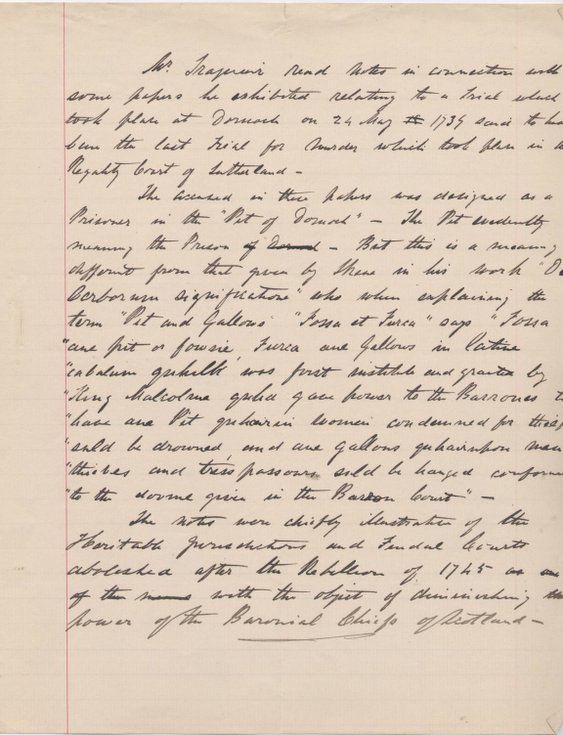 Mr. Traquair read Notes in connection with
some papers he exhibited relating to a Trial which
took place at Dornoch on 24 May 1739 said to have
been the last Trial for Murder which took place in a
Regality Court of Sutherland -
The accused in these papers was designed as a
Prisoner in the "Pit of Dornoch" - The Pit evidently
meaning the Prison of - But this is a meaning
different from that given by Skene in his work "De
Verborum Signification" who when explaining the
term "Pit and Gallows" "Fossa et Furca" says "Fossa
"ane pit or fowsie, Furca ane Gallows in latine
quhilk was first institute and granted by
"King Malcolme quha gave power to the Barrones to
"have ane Pit quhairin women condemned for thieft
"suld be drowned, and ane Gallows quhairupon men
"thieves and trespassours suld be hanged conforme
"to the doome given in the Barron Court" -
The notes were chiefly illustrative of the
Heritable Jurisdictions and Feudal Courts
abolished after the Rebellion of 1745 as one
of the means with the object of diminishing the
power of the Baronial Chiefs of Scotland -